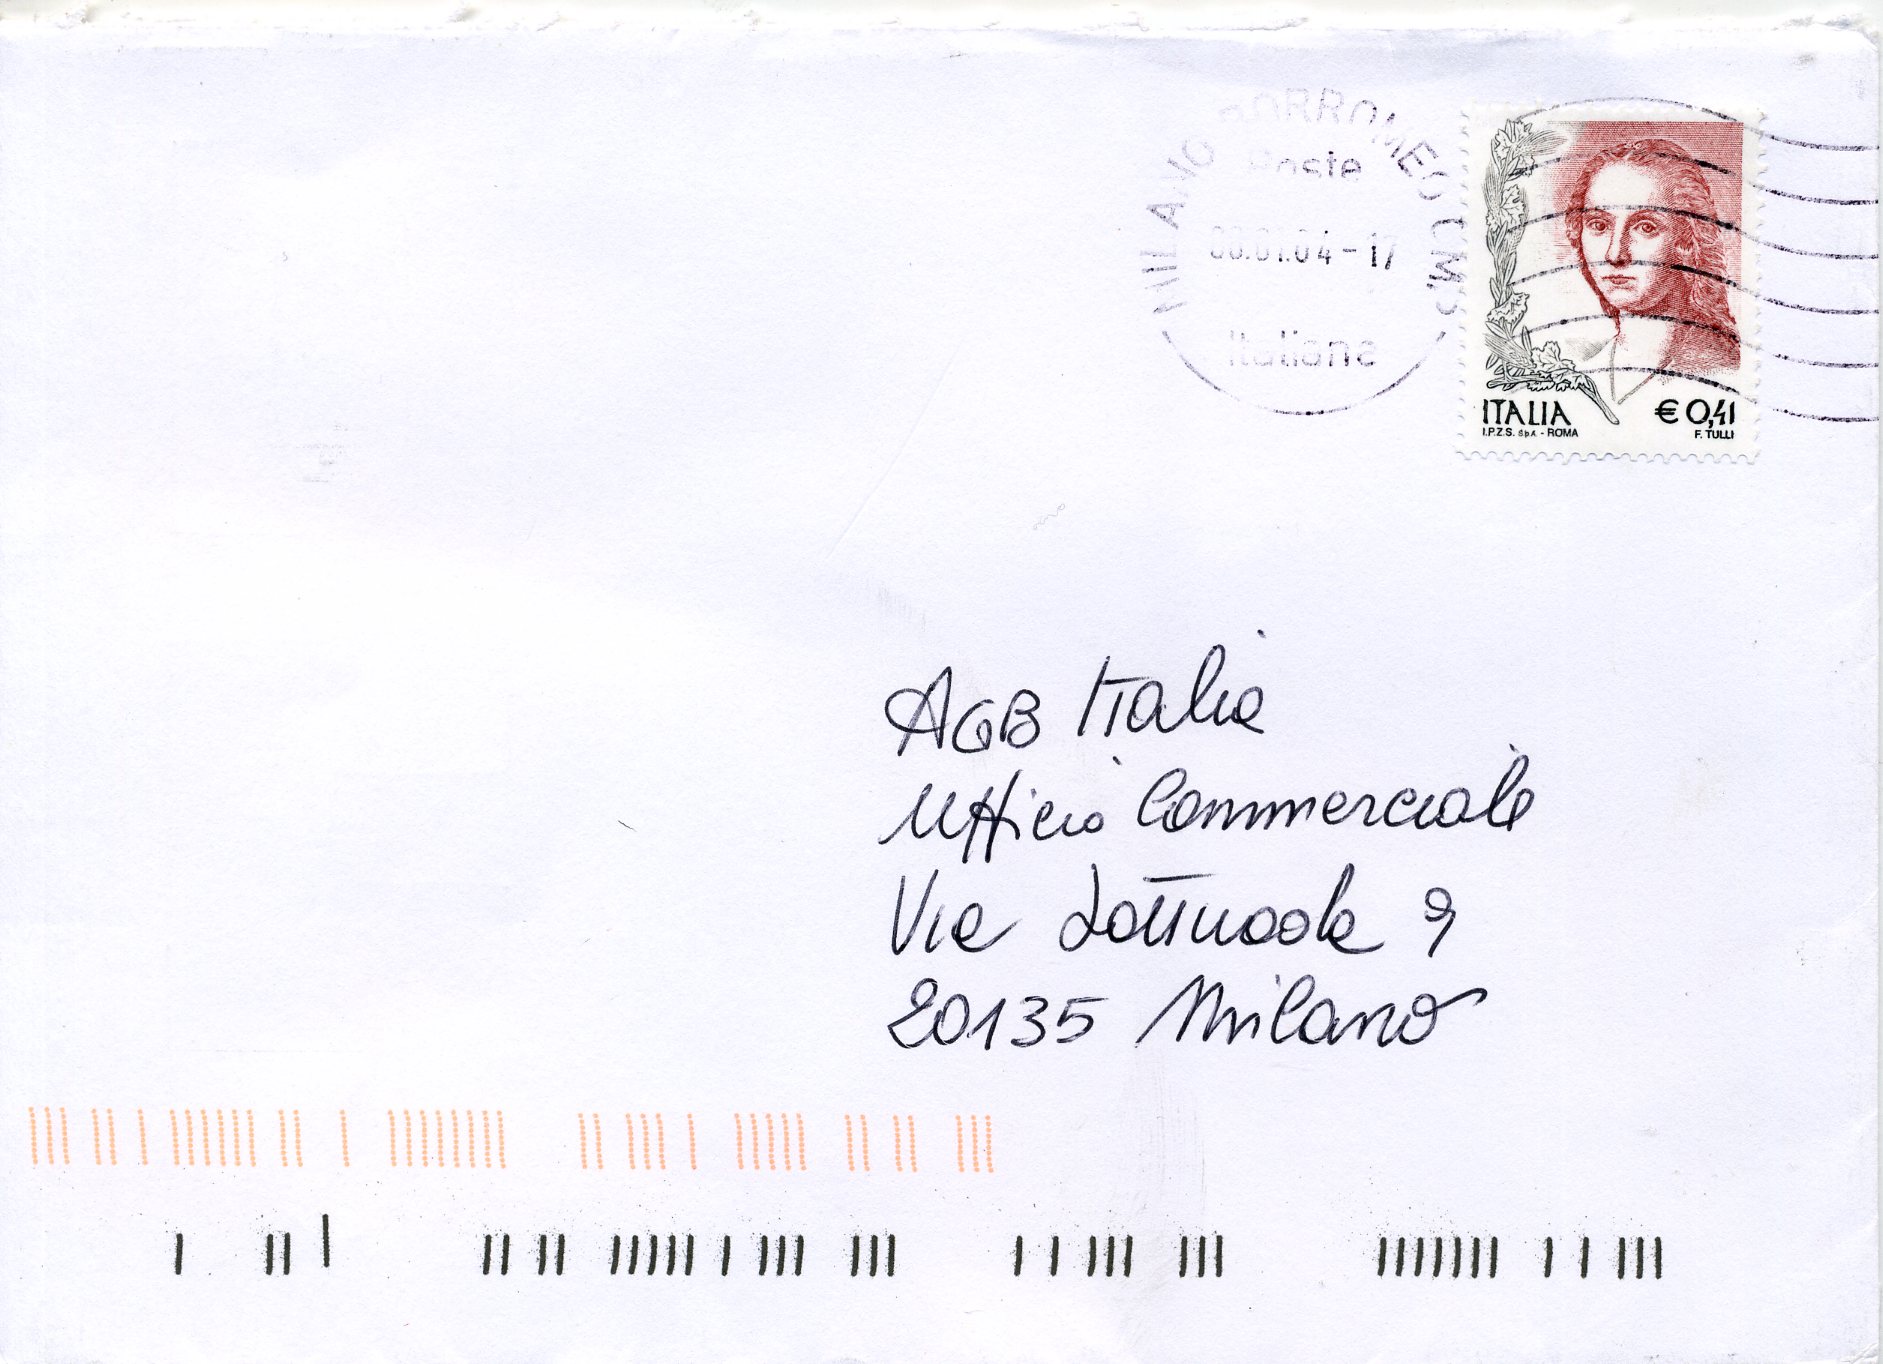 MILANO BORROMEO CMP
Poste
08.01.04-17
Italiane
ITALIA
€0,41
I.P.Z.S. S.p.A. - ROMA
F. TULLI
AGB Italia
Ufficio Commerciale
Via 9
20135 Milano